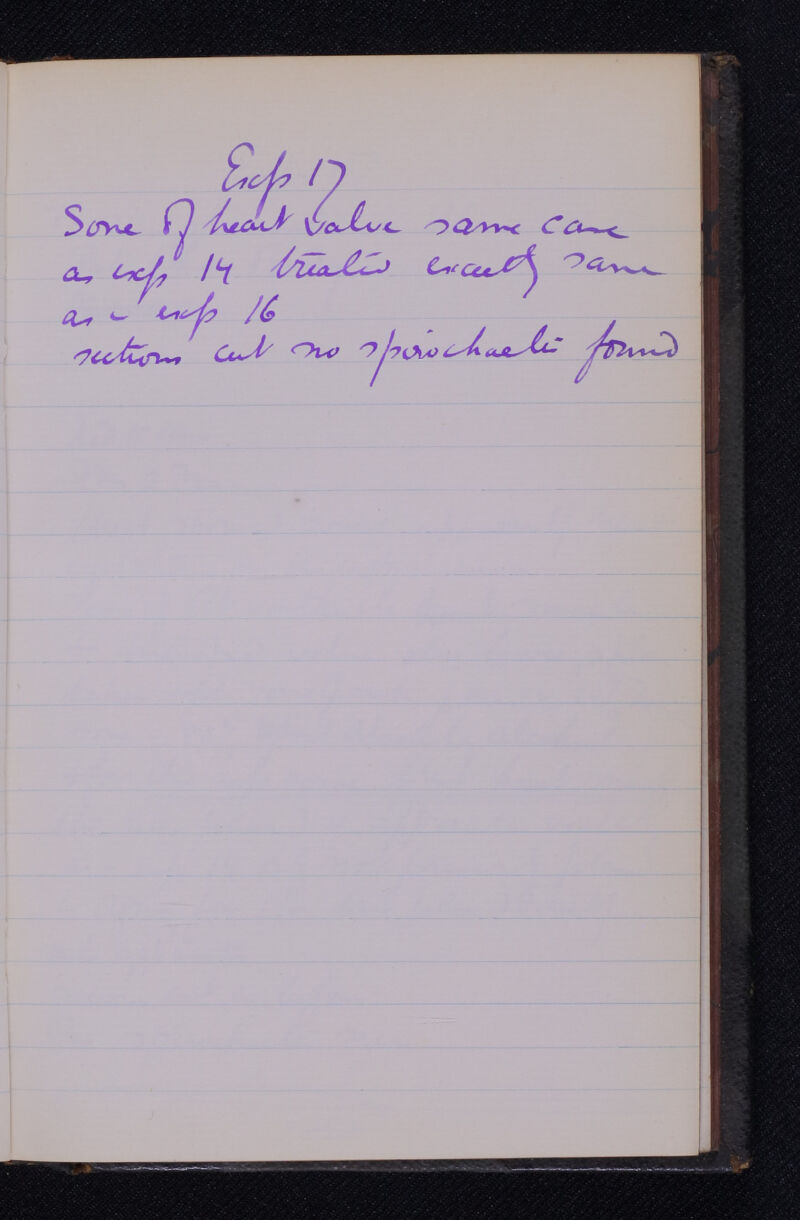 Exp 17
Some of heart valve same case
as exp 14 treated exactly same
as c exp 16
sections cut no spirochaetes found